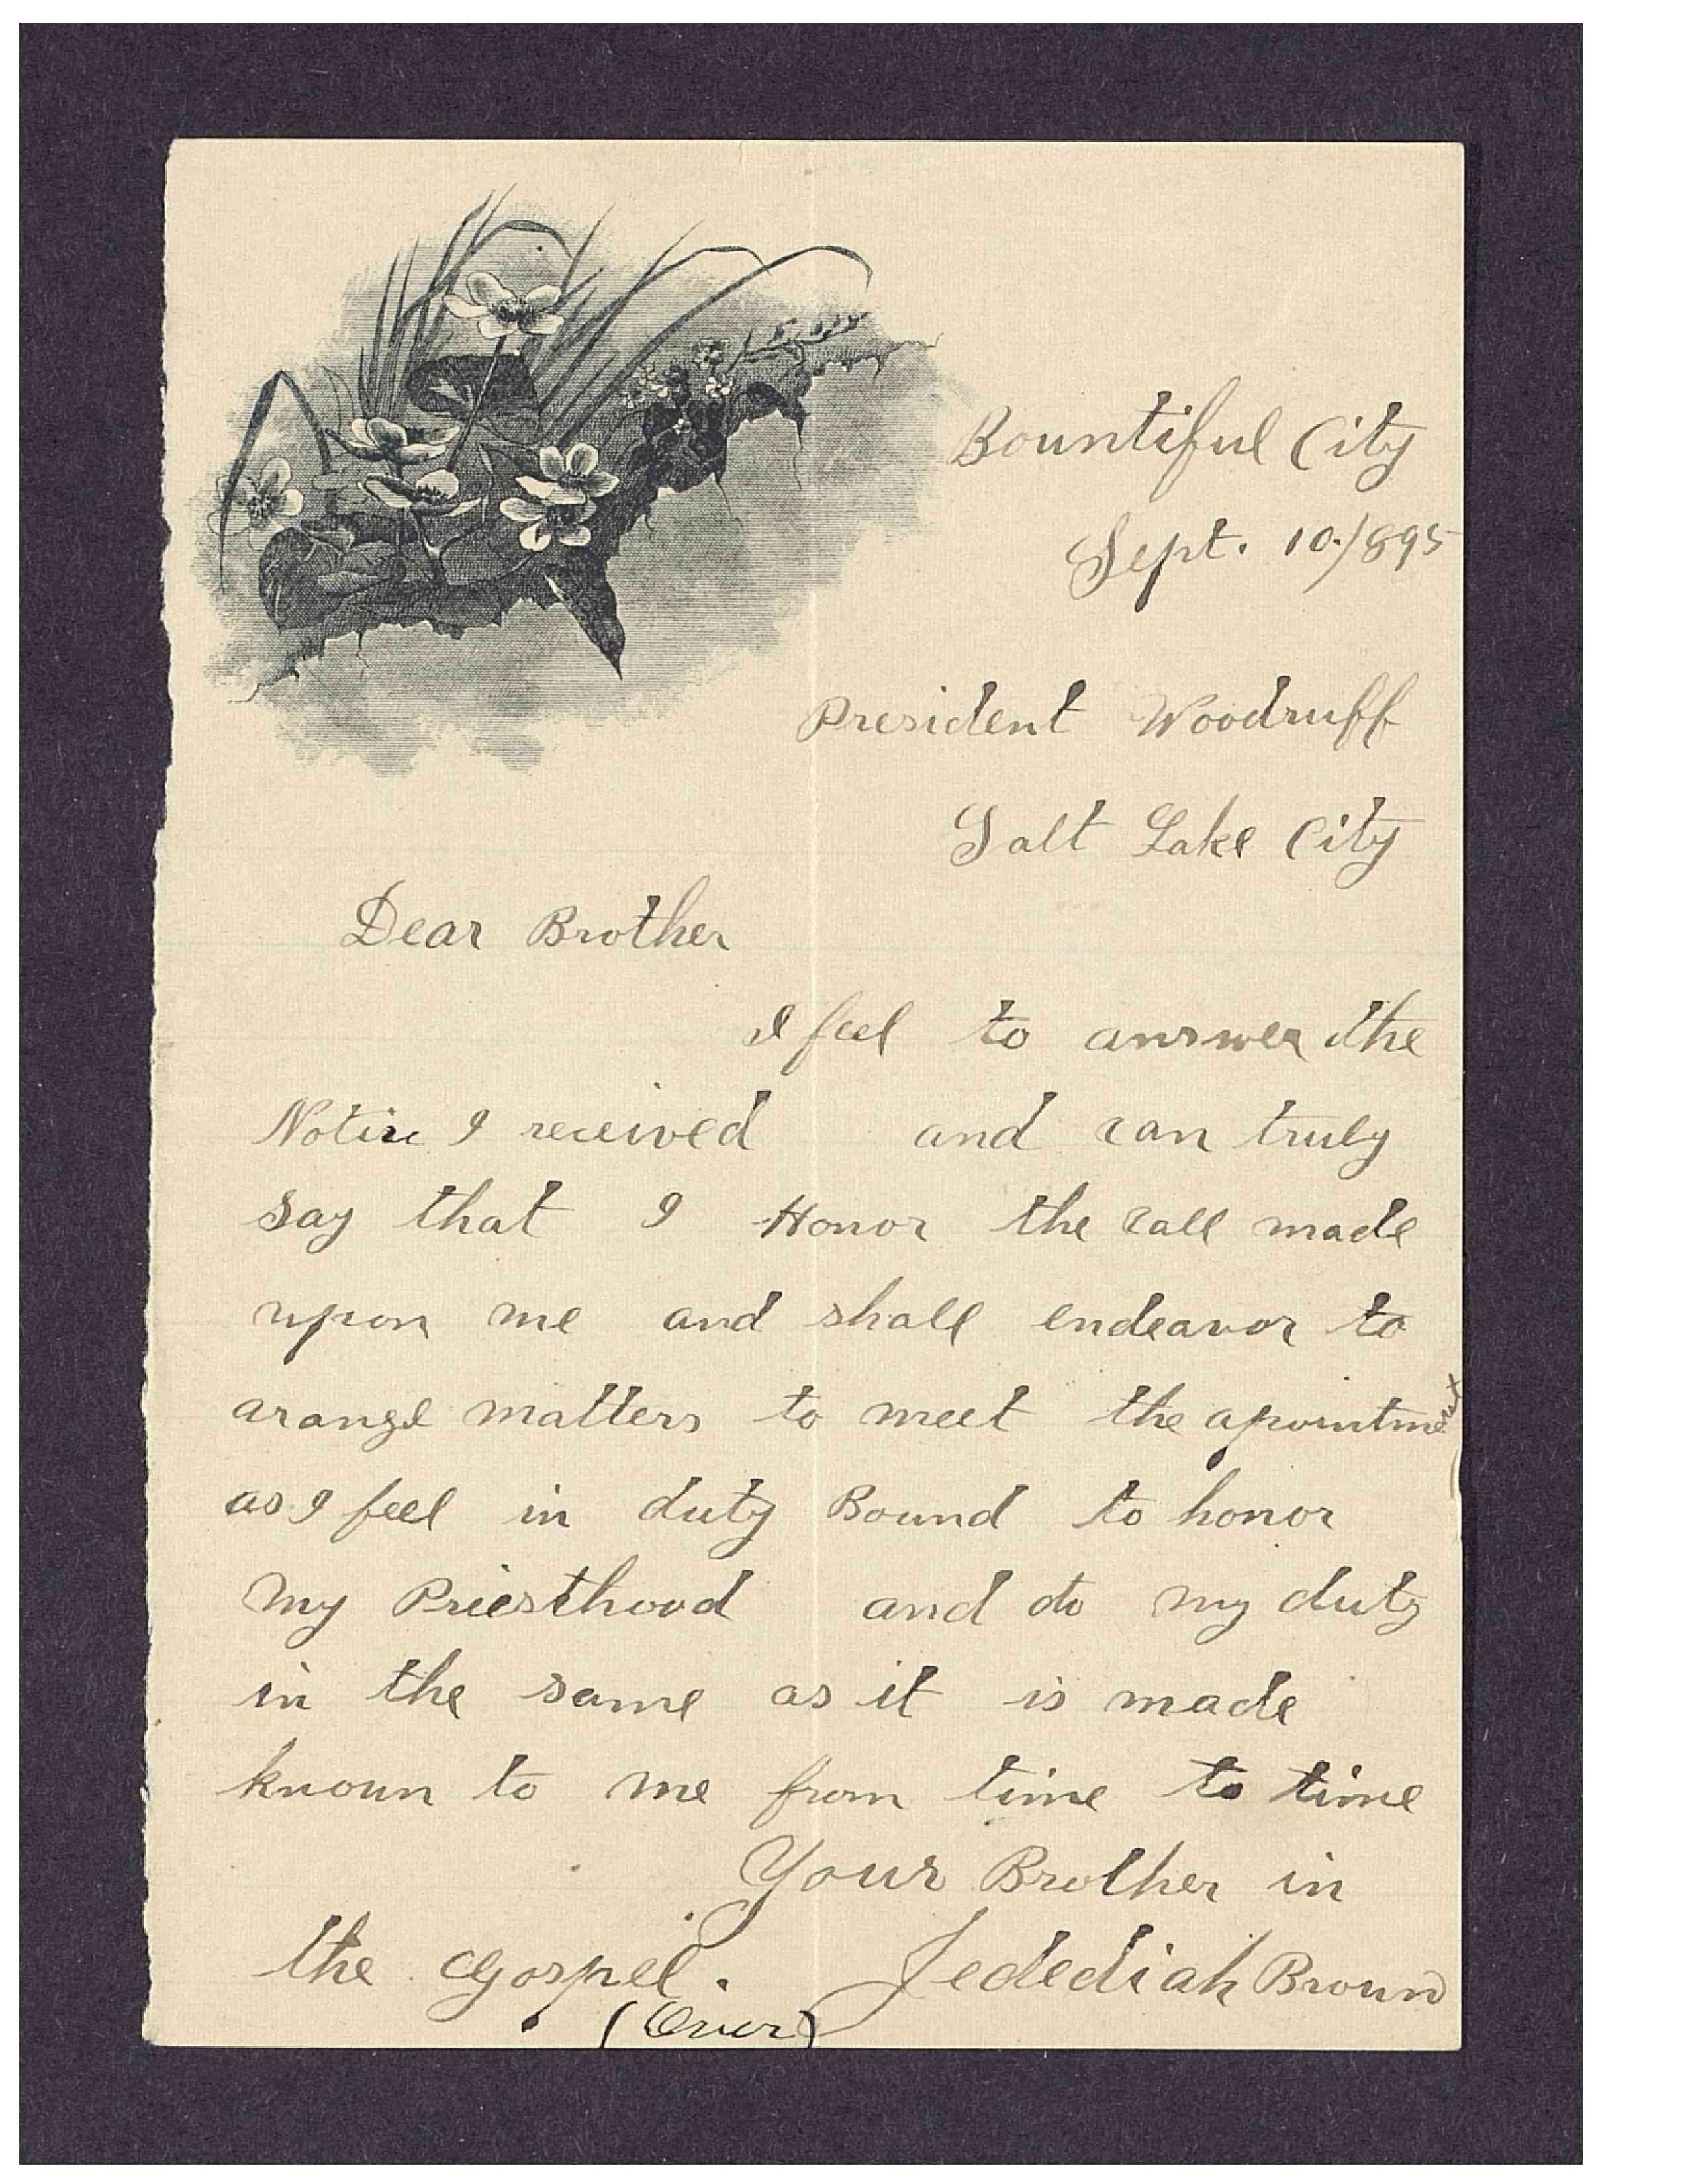 Bountiful City
Sept. 10./895
President Woodruff
Salt Lake City
Dear Brother
I feel to answer the
Notice I received and can truly
say that I Honor the call made
upon me and shall endeavor to
arange matters to meet the apointment
as I feel in duty Bound to honor
my Priesthood and do my duty
in the same as it is made
known to me from time to time
Your Brother in
the Gospel. Jedediah Brown
(Over)